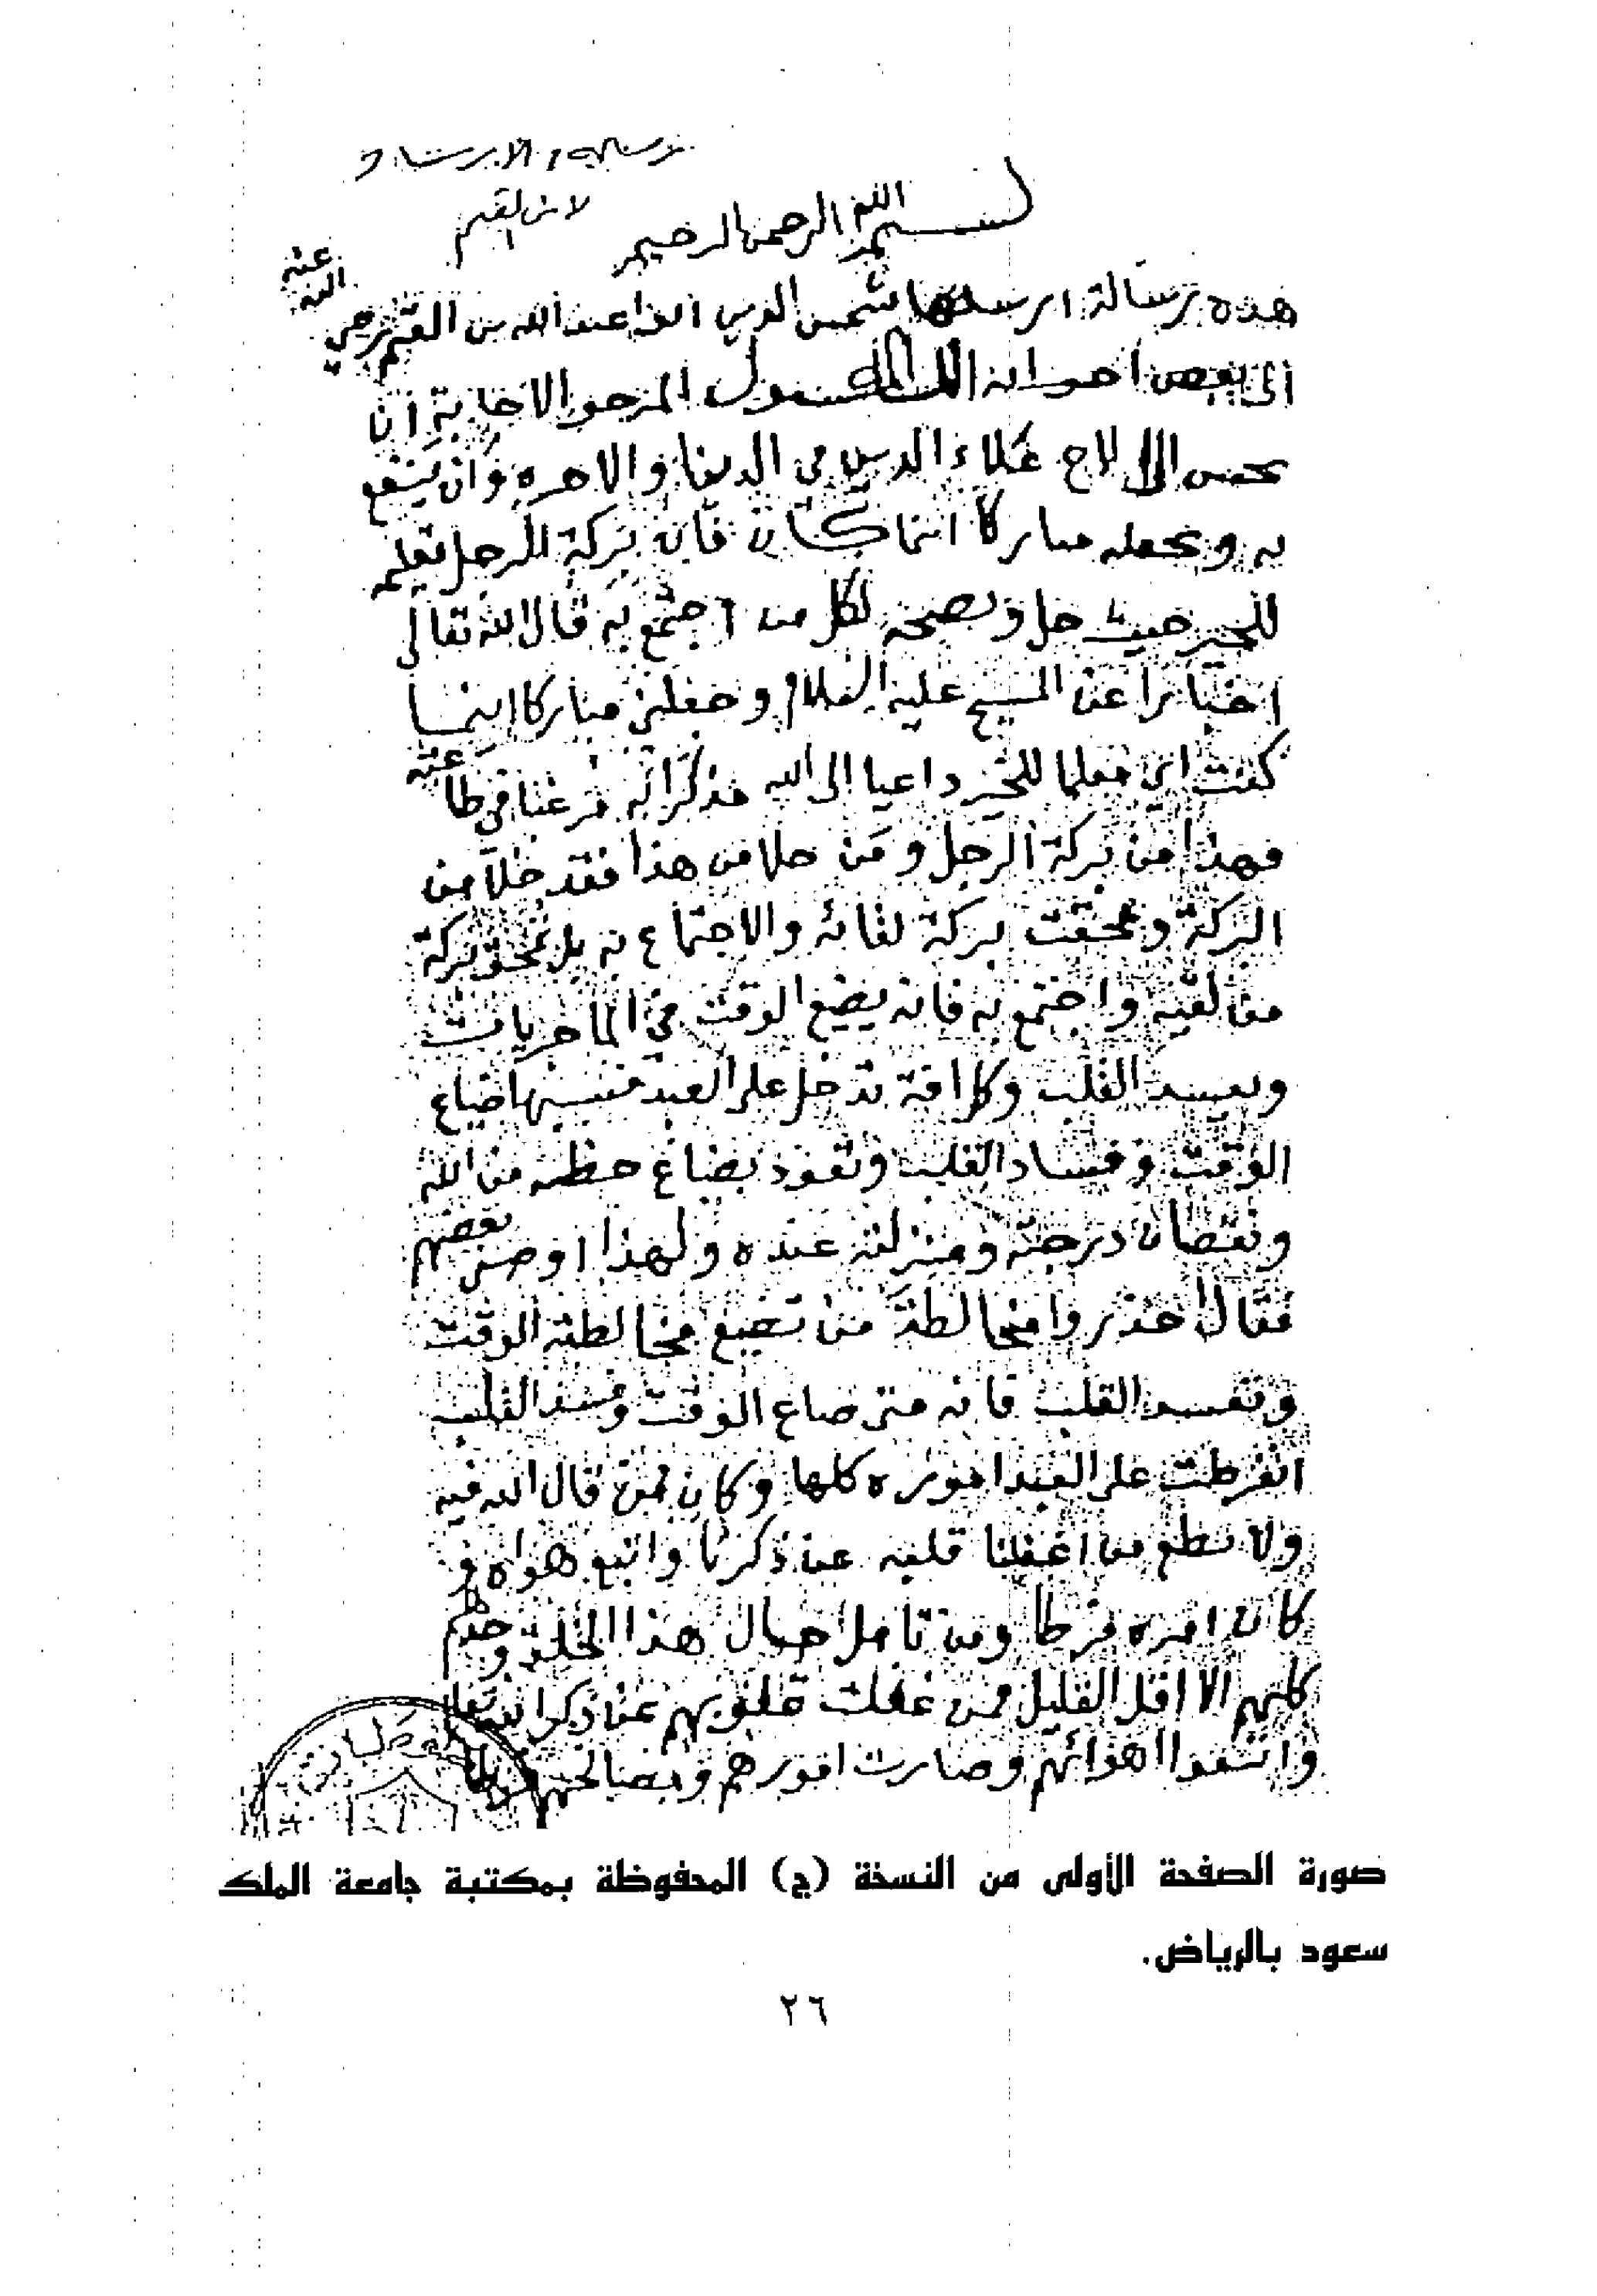 رسالة الارشاد
لابن القيم
بسم الله الرحمن الرحيم
هذه رسالة ارسلها شمس الدين ابو عبد الله بن القيم رضي الله عنه
الى بعض اخوانه الله المسئول المرجو الاجابة ان
يحسن الى الاخ علاء الدين في الدنيا والاخره وان ينفع
به ويجعله مباركا اينما كان فان بركة الرجل تعليمه
للخير حيث حل ونصحه لكل من اجتمع به قال الله تعالى
اخبارا عن المسيح عليه السلام وجعلني مباركا اينما
كنت اي معلما للخير داعيا الى الله مذكرا به مرغبا في طاعته
فهذا من بركة الرجل ومن خلا من هذا فقد خلا من
البركة ومحقت بركة لقائه والاجتماع به بل تمحق بركة
من لقيه واجتمع به فانه يضيع الوقت في الماجريات
ويفسد القلب وكل افة تدخل على العبد فسببها ضياع
الوقت وفساد القلب وتعود بضياع حظه من الله
ونقصان درجته ومنزلته عنده ولهذا اوصى بعضهم
فقال احذروا مخالطة من تضيع مخالطته الوقت
وتفسد القلب فانه متى ضاع الوقت وفسد القلب
انفرطت على العبد اموره كلها وكان ممن قال الله فيه
ولا تطع من اغفلنا قلبه عن ذكرنا واتبع هواه و
كان امره فرطا ومن تامل حال هذا الخلق وجدهم
كلهم الا اقل القليل ممن غفلت قلوبهم عن ذكر الله تعالى
واتبعوا اهوائهم وصارت امورهم ومصالحهم فرطا
صورة الصفحة الأولى من النسخة (ج) المحفوظة بمكتبة جامعة الملك
سعود بالرياض.
٢٦